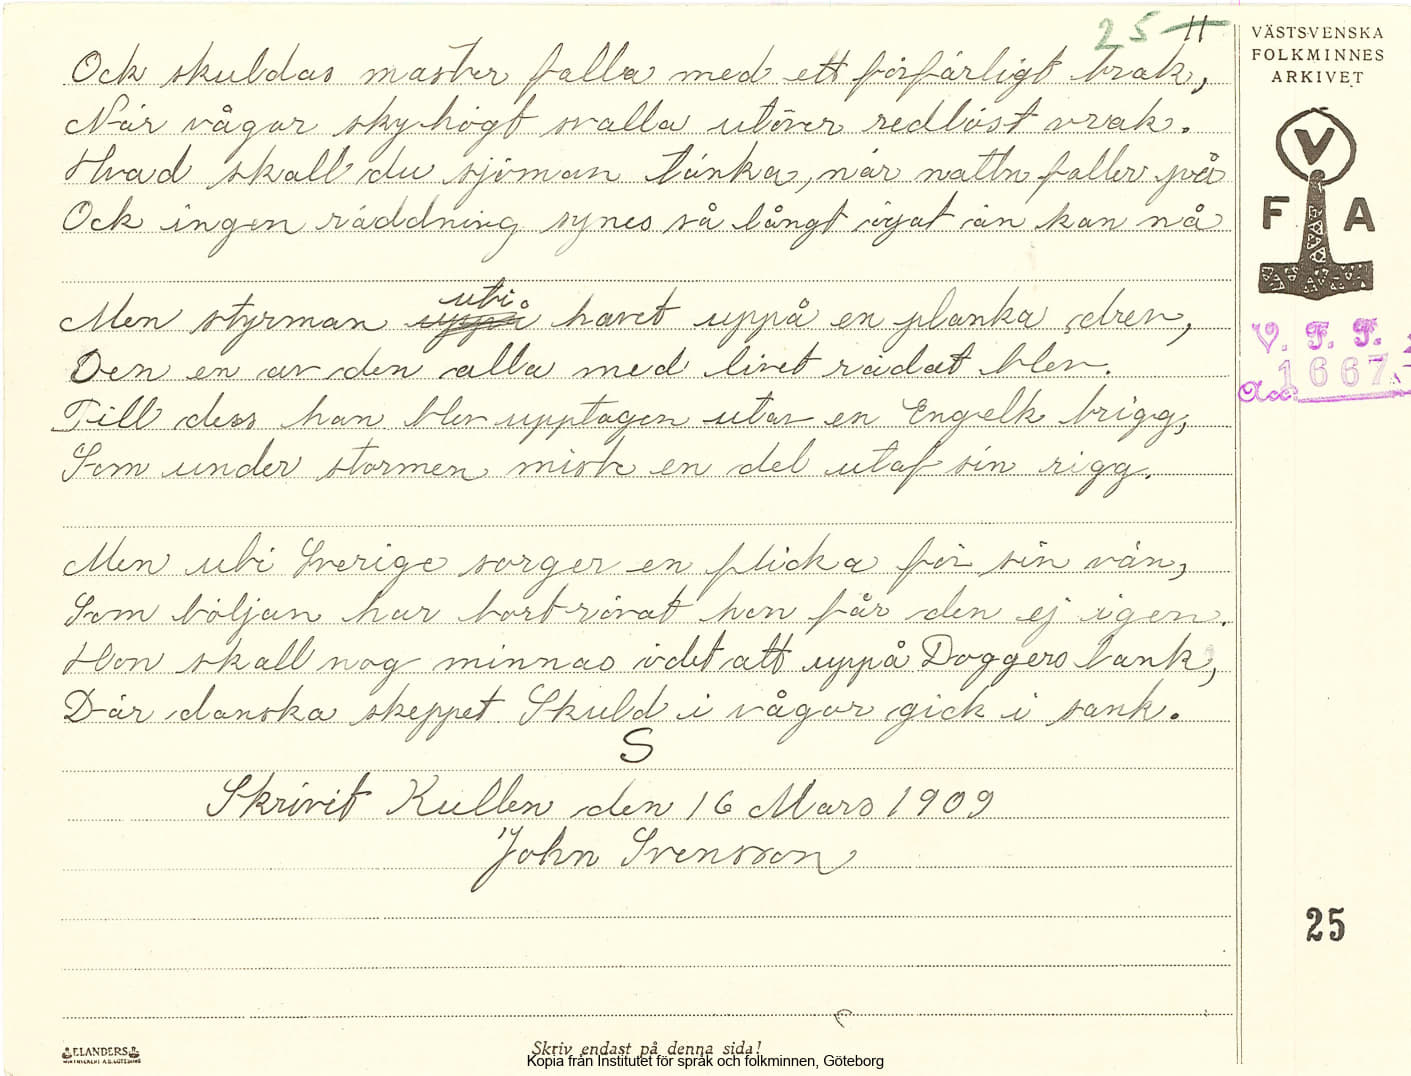 25 11
VÄSTSVENSKA
FOLKMINNES
ARKIVET
Ock skuldas master falla med ett förfärligt brak,
När vågor skyhögt svalla utöver redlöst vrak.
Hvad skall du sjöman tänka, när nattn faller på
Ock ingen räddning synes så långt ögat än kan nå
V
F A
Men styrman uppå utvi havet uppå en planka drev,
Den en av den alla med livet rädat blev.
Till dess han blev upptagen utav en Engelk brigg,
Som under stormen miste en del utaf sin rigg.
V. F. F.
Acc. 1667
Men ubi Sverige sorger en flicka för sin vän,
Som böljan har bort rövat hon får den ej igen.
Hon skall nog minnas ödet att uppå Doggers bank,
Där danska skeppet Skuld i vågor gick i sank.
S
Skrivit Kullen den 16 Mars 1909
John Svensson
25
ELANDERS
Skriv endast på denna sida!
Kopia från Institutet för språk och folkminnen, Göteborg